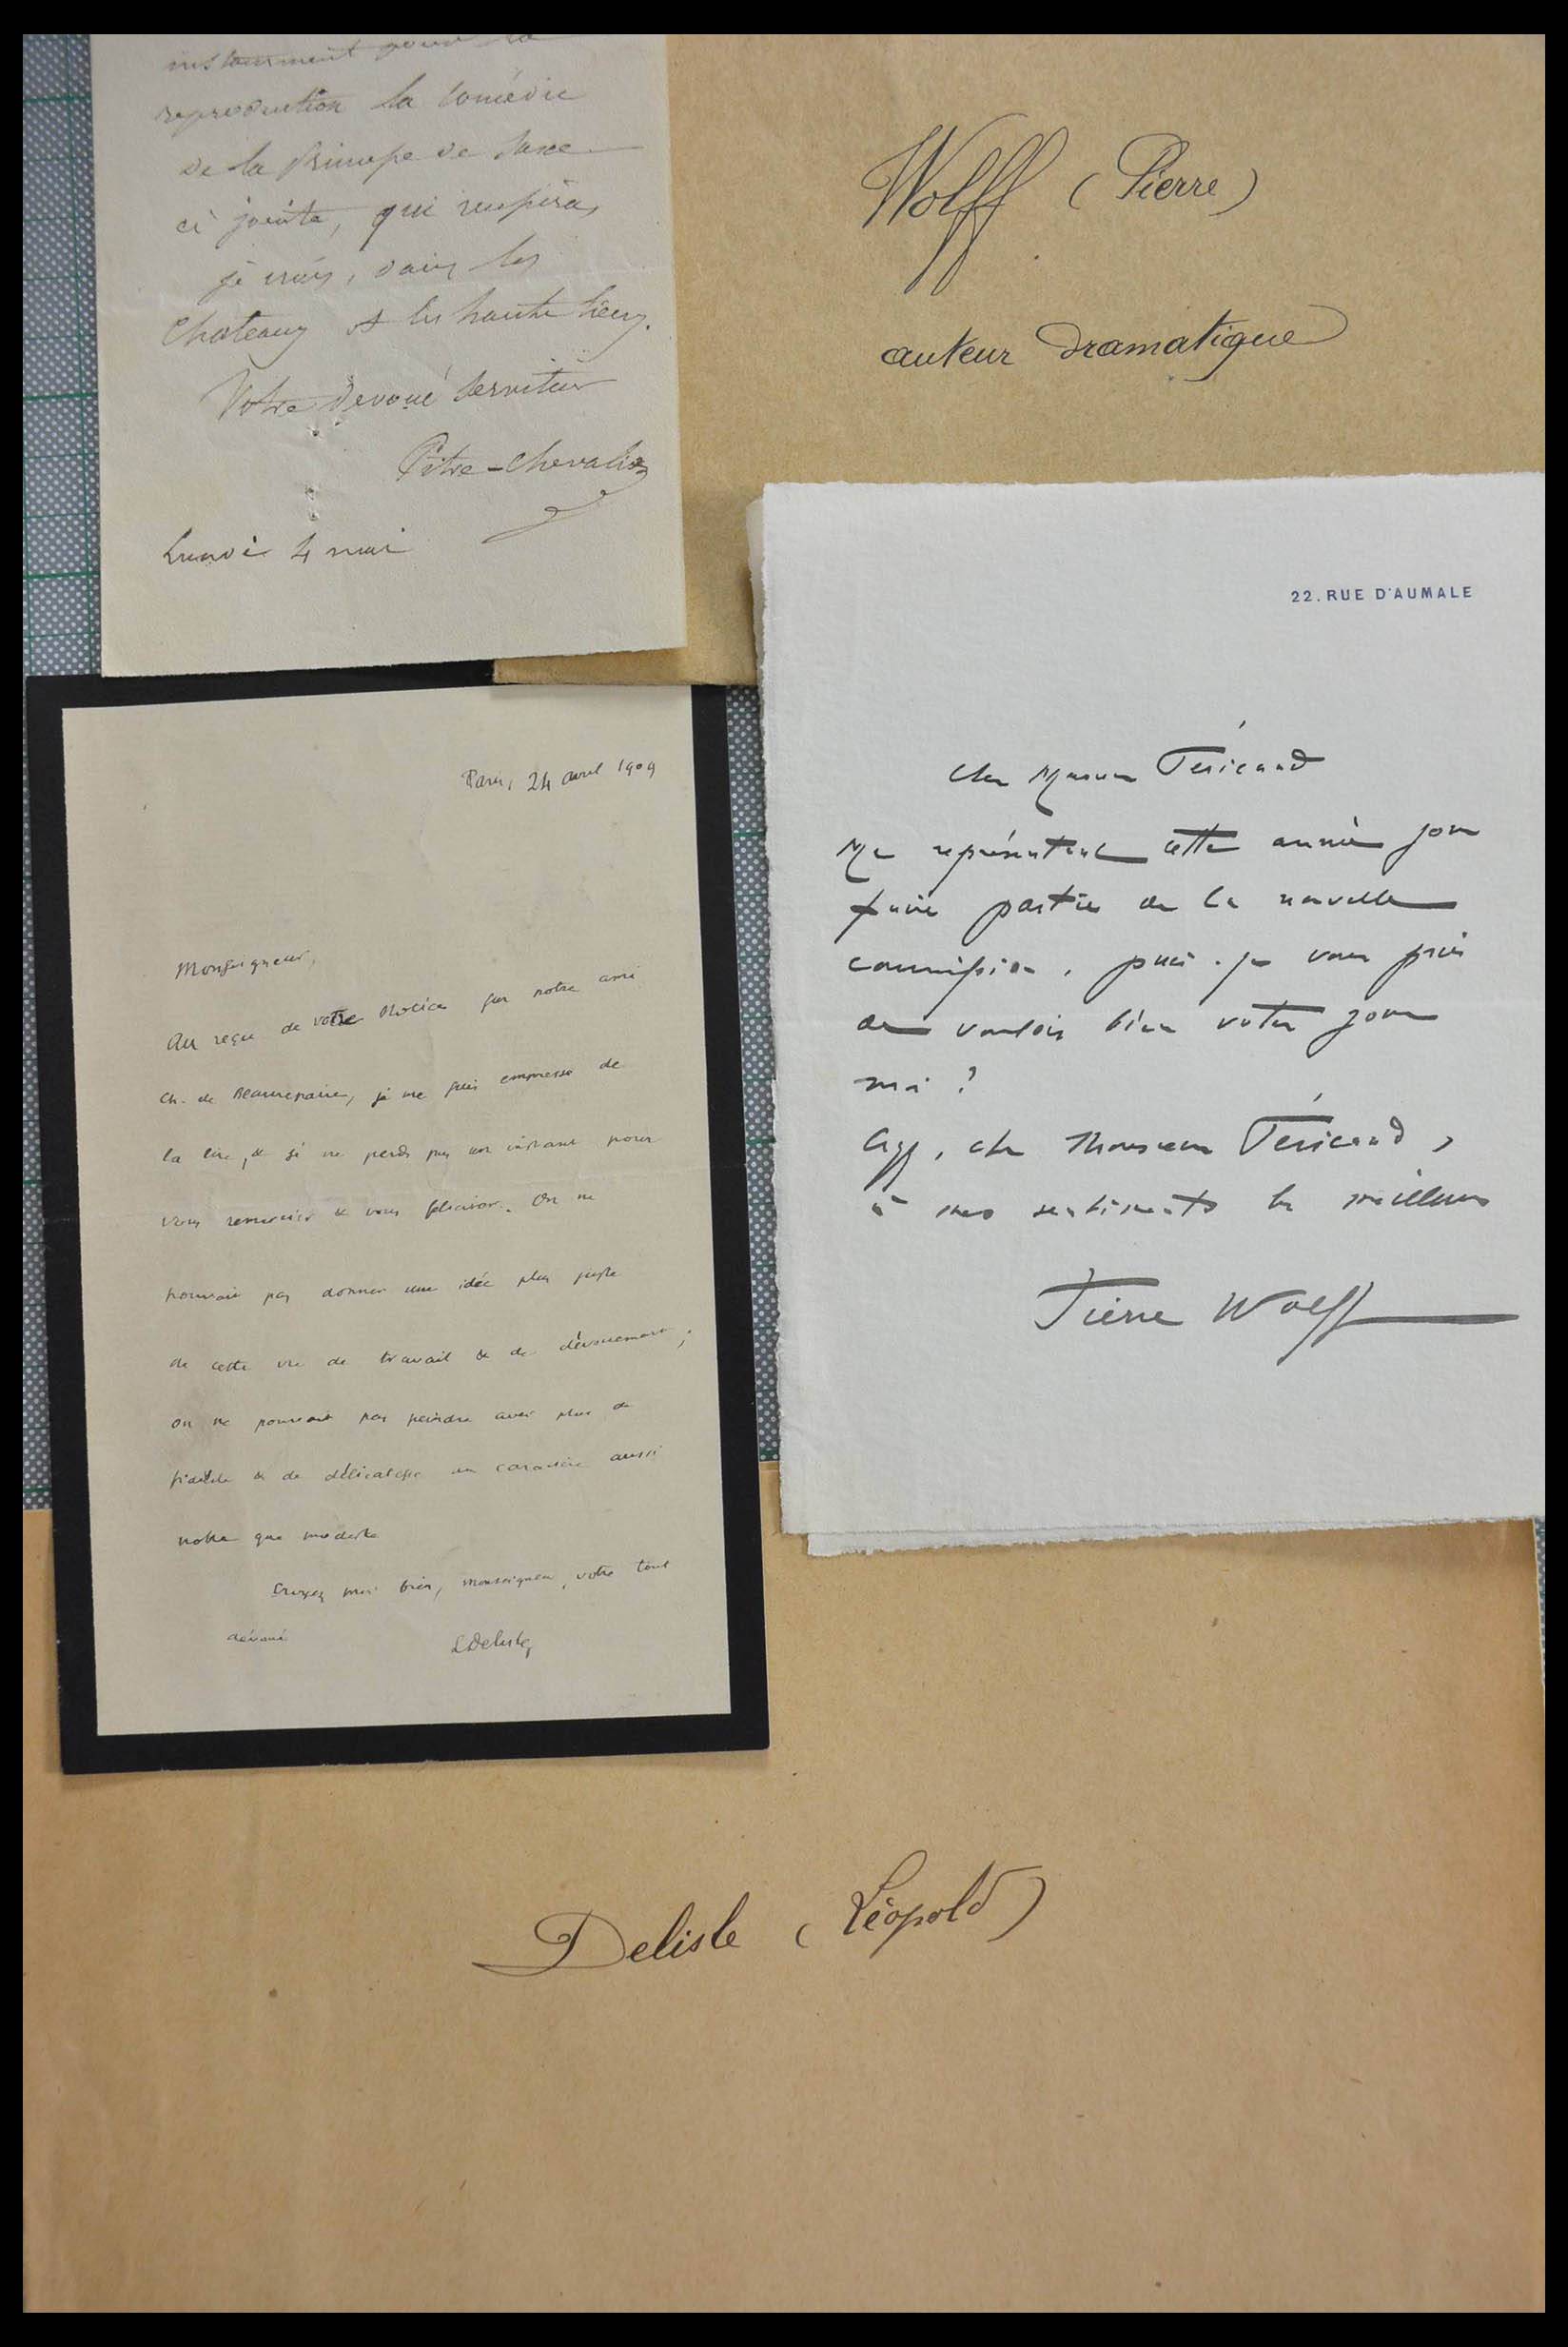 reproduction la comédie
de la Princesse de Saxe
ci jointe, qui
je crois, dans les
Chateaux et les hauts lieux.
Votre dévoué serviteur
Pitre-Chevalier
Lundi 4 mai
Wolff (Pierre)
auteur dramatique
Paris, 24 avril 1909
Monseigneur,
Au reçu de votre Notice sur notre ami
Ch. de Beaurepaire, je me suis empressé de
la lire, & je ne perds pas un instant pour
vous remercier & vous féliciter. On ne
pouvait pas donner une idée plus juste
de cette vie de travail & de dévouement;
on ne pouvait pas peindre avec plus de
fidélité & de délicatesse un caractère aussi
noble que modeste
Croyez moi bien, Monseigneur, votre tout
dévoué
L Delisle
22. RUE D'AUMALE
Cher Monsieur Péricaud
Me représentant cette année pour
faire partie de la nouvelle
commission, puis-je vous prier
de vouloir bien voter pour
moi?
cher Monsieur Péricaud,
à mes sentiments les meilleurs
Pierre Wolff
Delisle (Léopold)